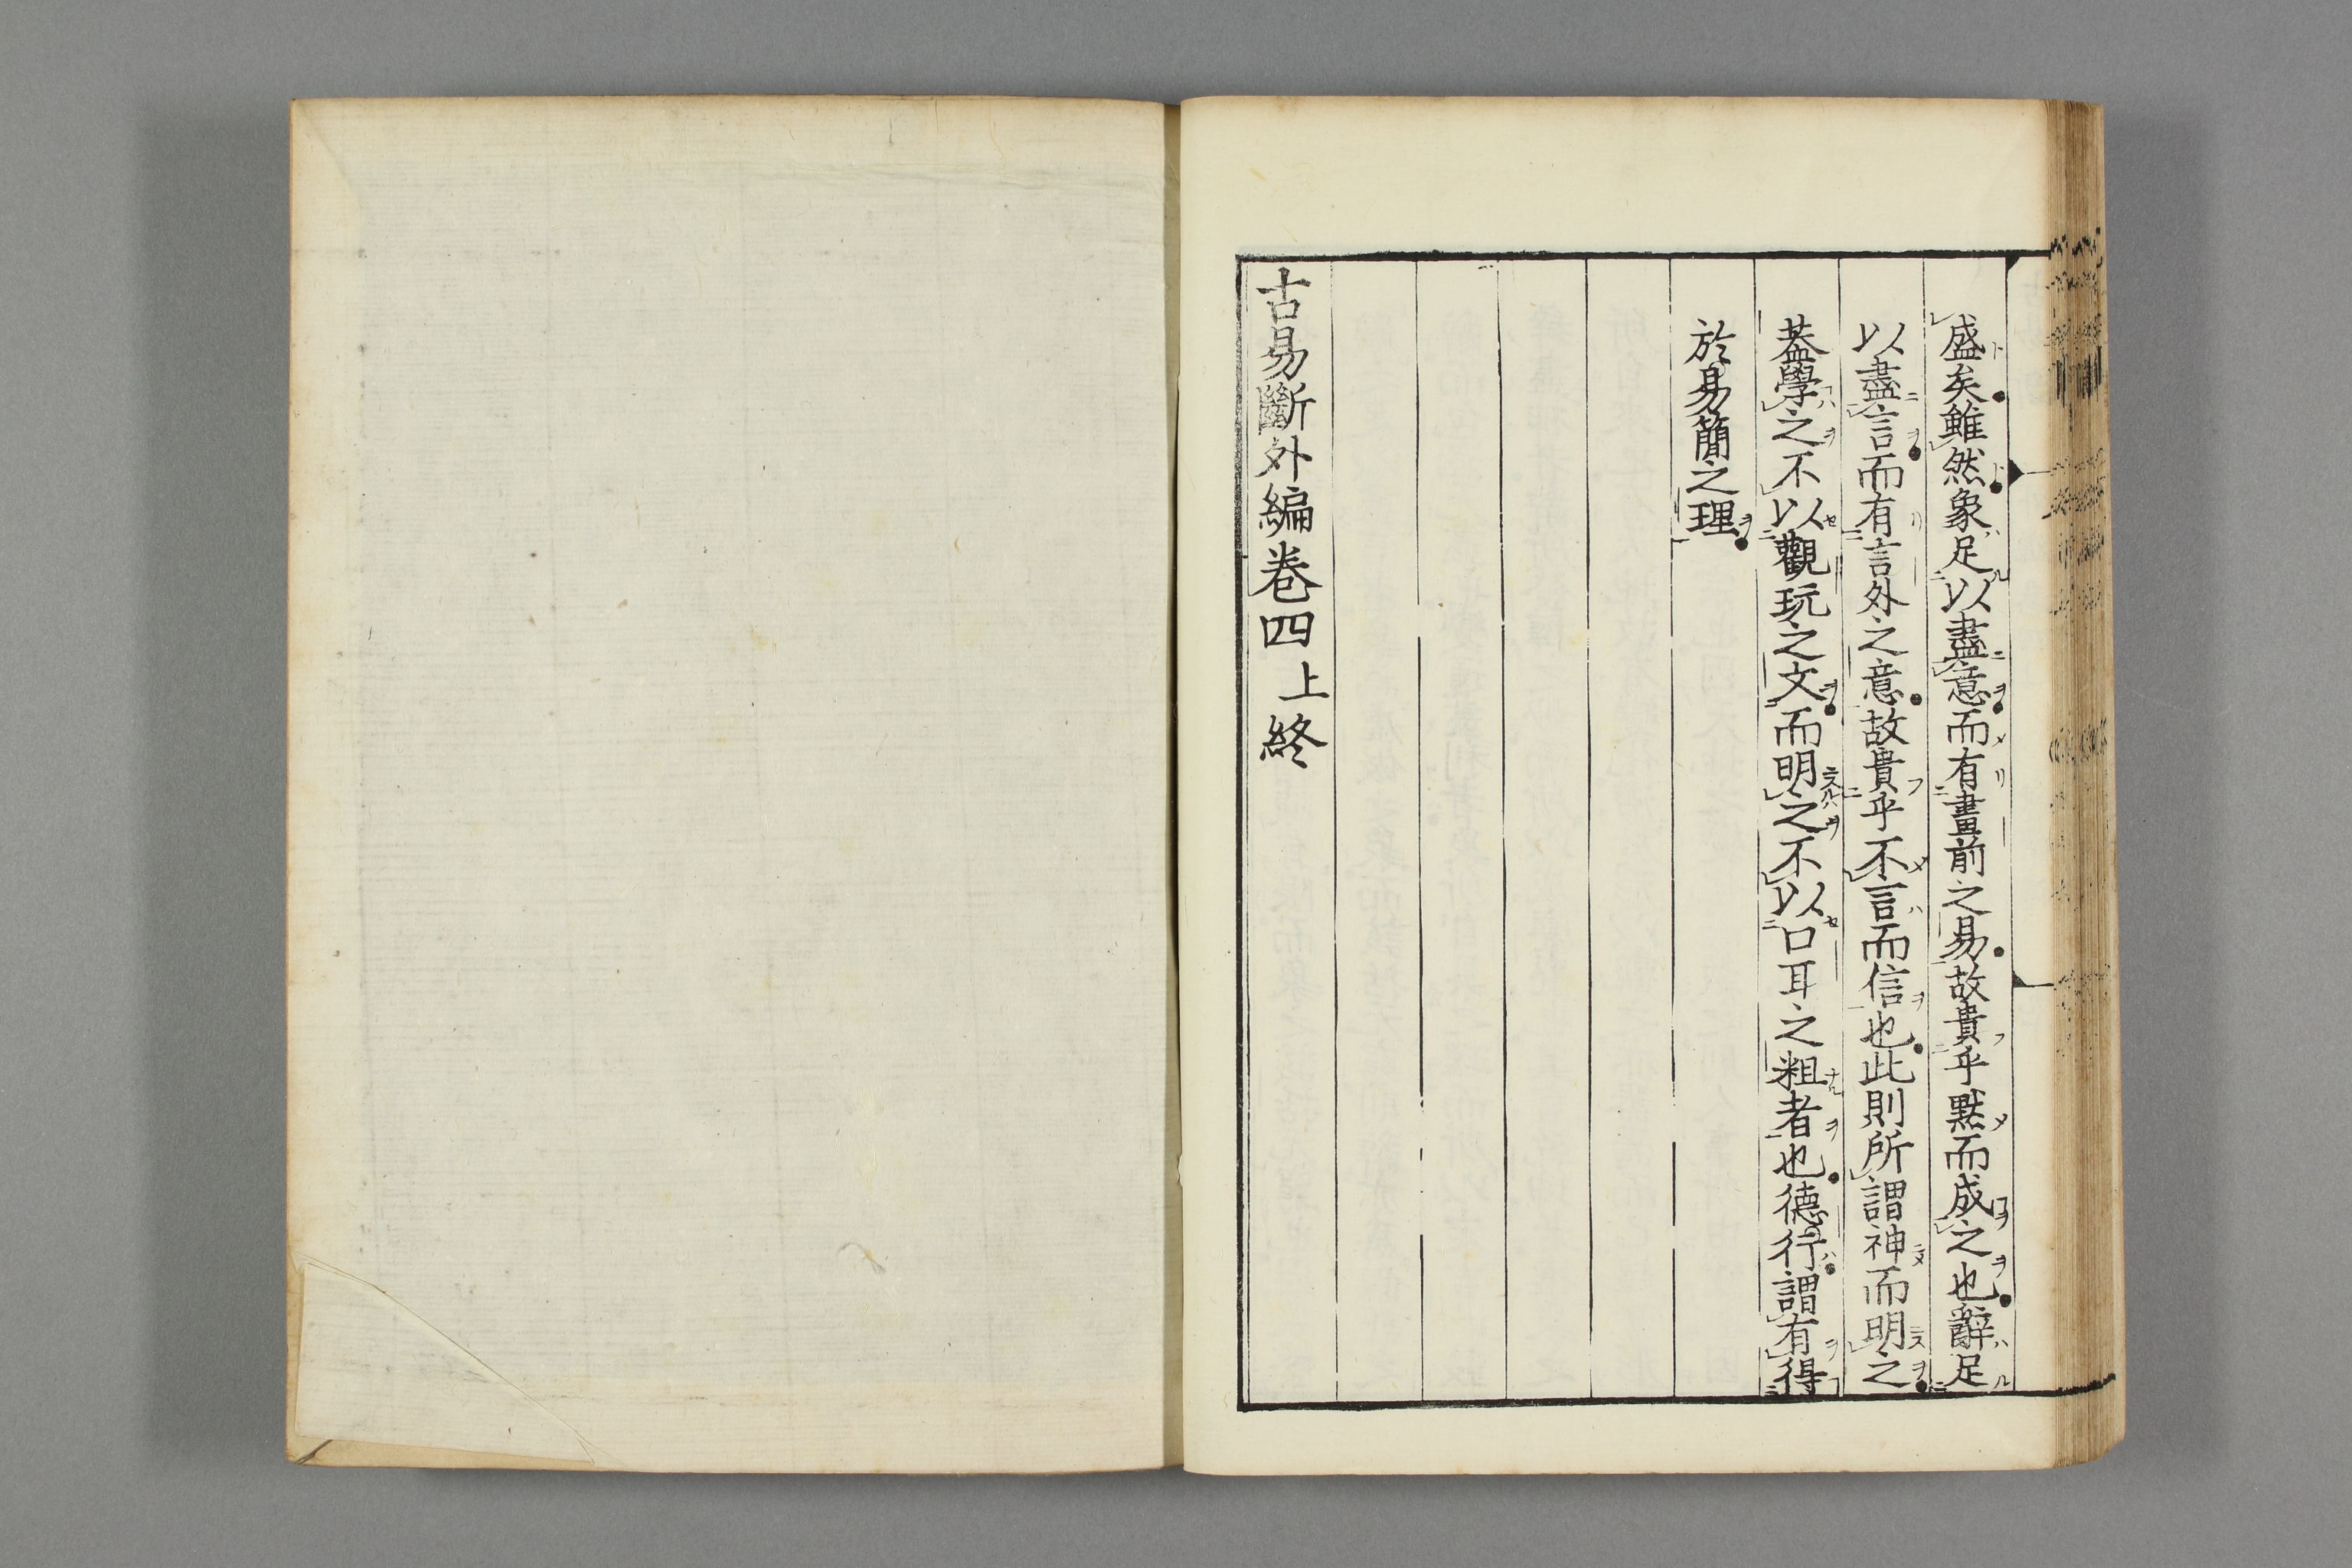 盛矣雖然象足以盡意而有畫前之易故貴乎黙而成之也辭足
以盡言而有言外之意故貴乎不言而信也此則所謂神而明之
葢學之不以觀玩之文而明之不以口耳之粗者也德行謂有得
於易簡之理
古易斷外編卷四上終